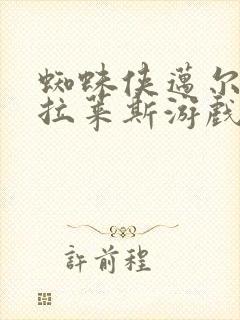 蜘蛛侠邁尔
拉莱斯游戲
許前程